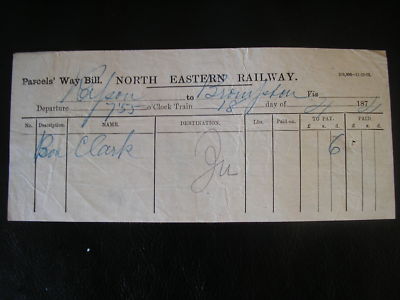 Parcels' Way Bill. NORTH EASTERN RAILWAY.
to Brompton Via
Departure 7.55 o'Clock Train 18 day of 187
No. Description. NAME. DESTINATION. Lbs. Paid on. TO PAY. PAID.
£ s. d. £ s. d.
Box Clark 6